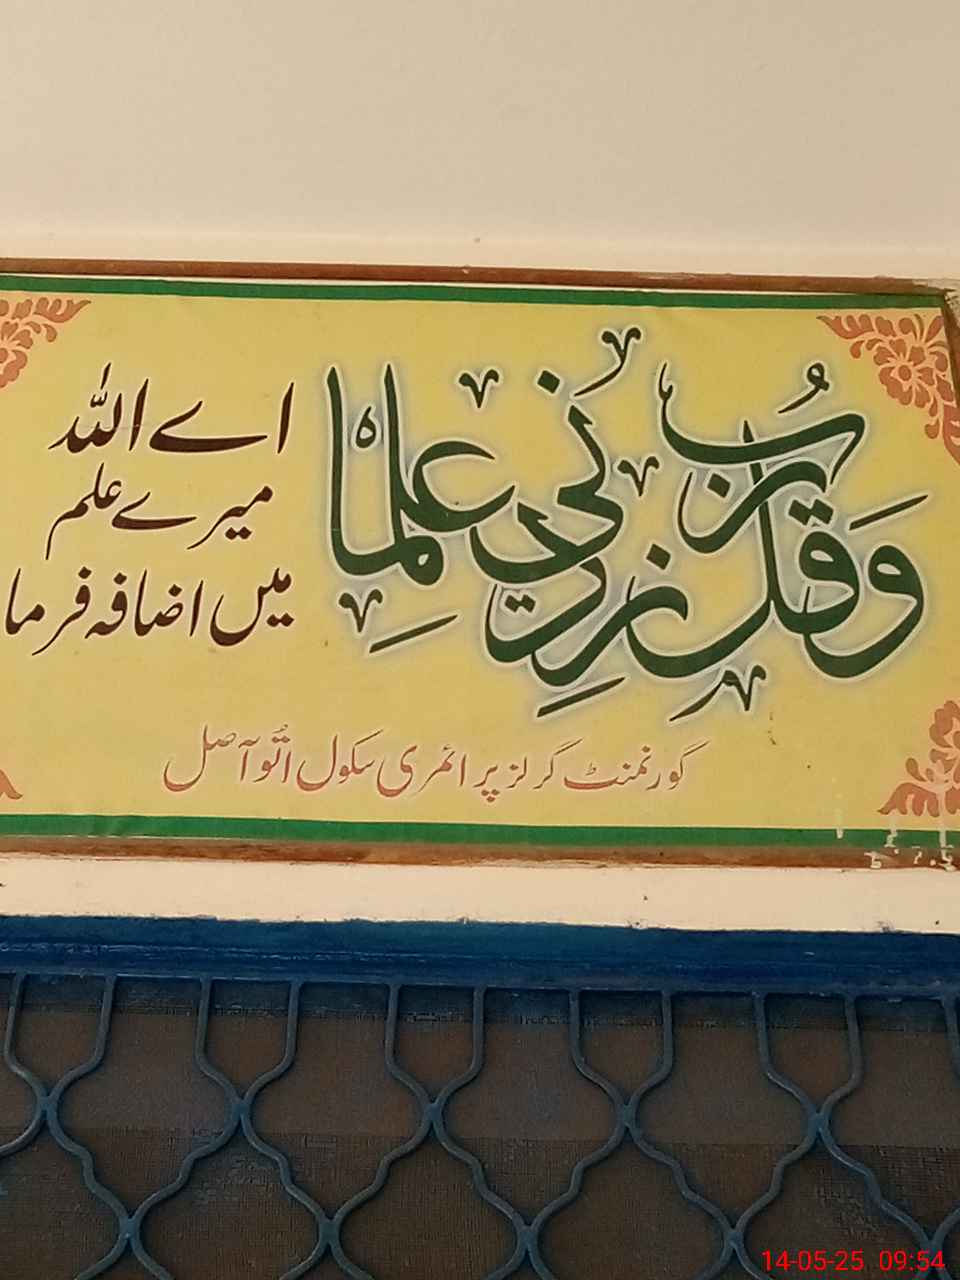 وَقُلْ رَّبِّ زِدْنِیْ عِلْمًا
اے اللہ
میرے علم
میں اضافہ فرما
گورنمنٹ گرلز پرائمری سکول اٹوآصل
14-05-25 09:54